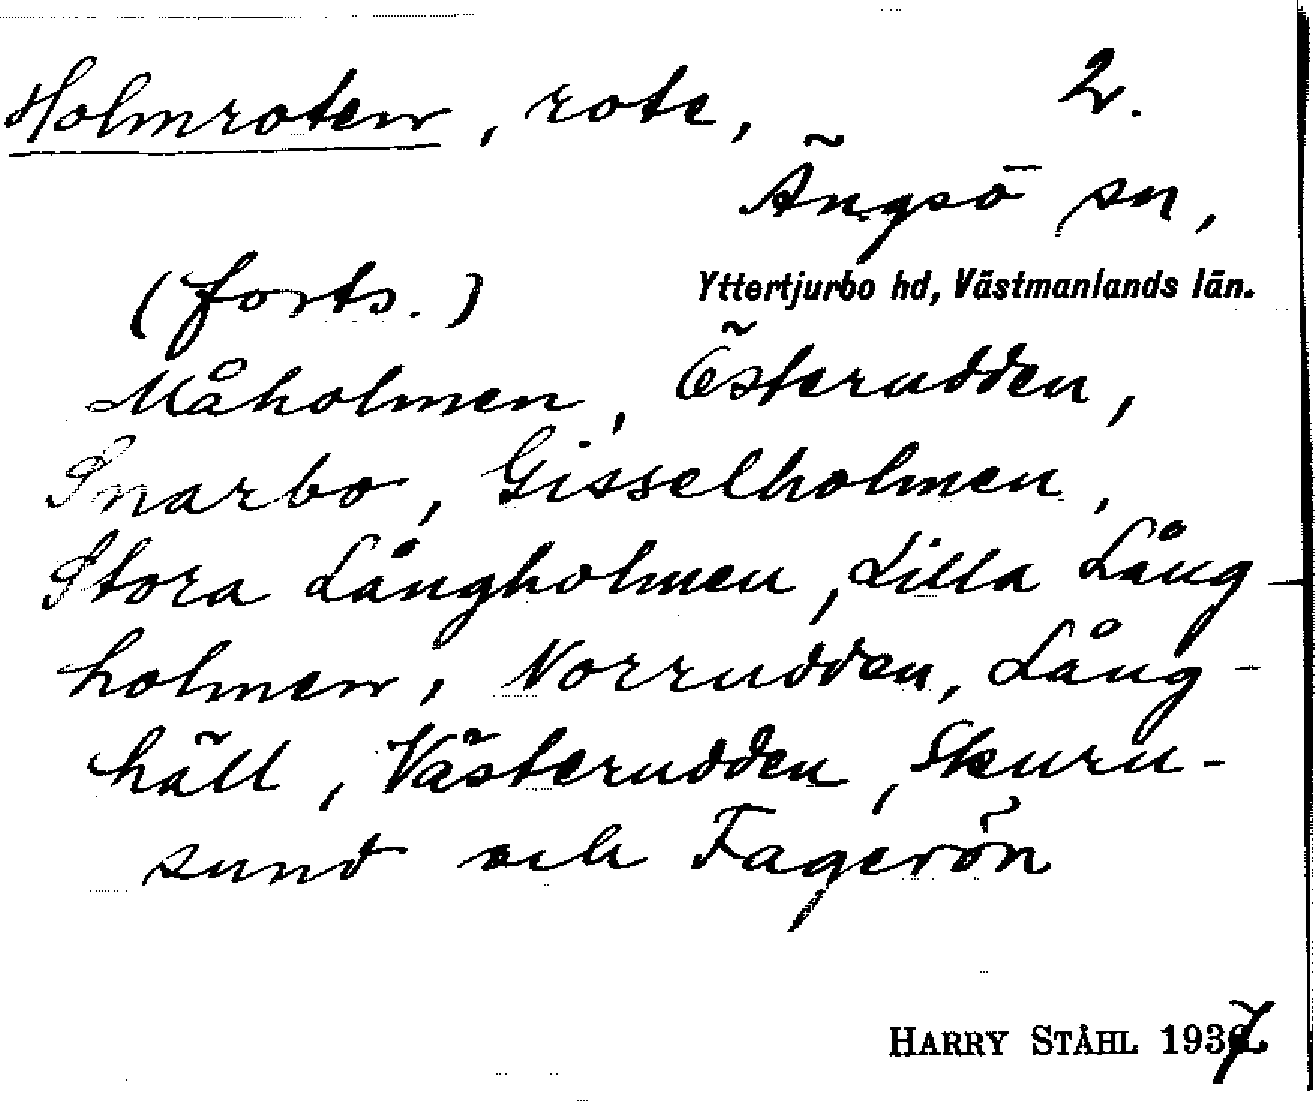 Holmroten, rote, 2.
Ängsö sn,
(forts.) Yttertjurbo hd, Västmanlands län.
Måholmen, Österudden,
Snarbo, Gisselholmen,
Stora Långholmen, Lilla Lång-
holmen, Norrudden, Lång-
häll, Västerudden, Skuru-
sund och Fagerön
HARRY STÅHL 1937